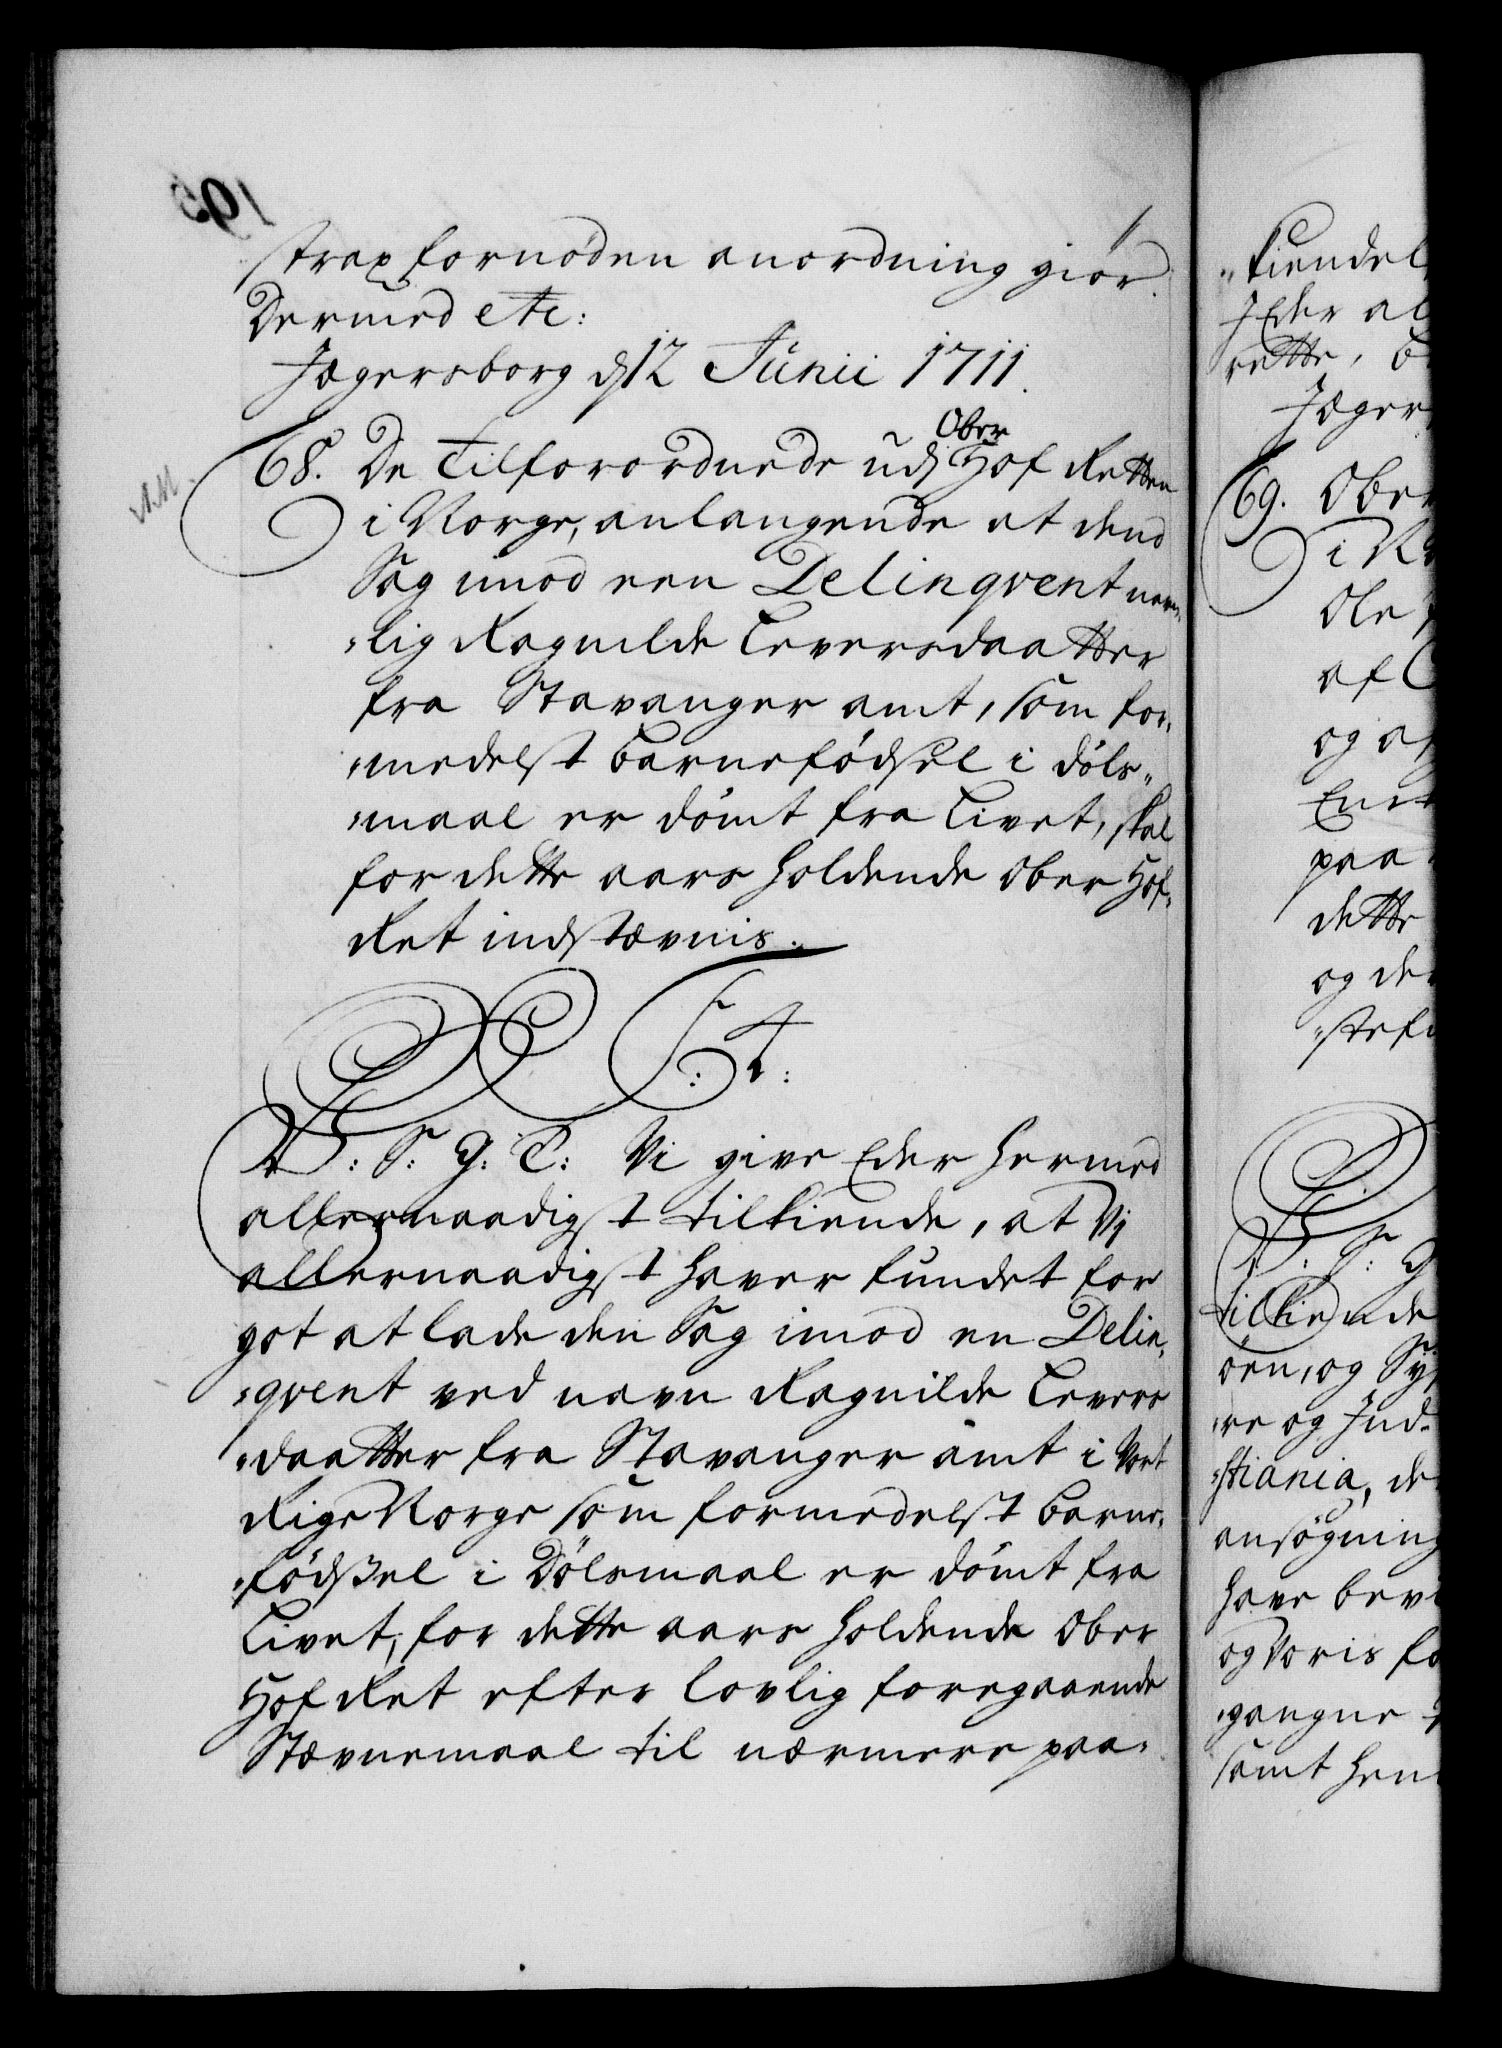 strax fornøden anordning giør.
Dermed etc:
Jægersborg d 12 Junii 1711.
68. De Tilforordnede udj Ober Hof Retten
i Norge, anlangende at dend
Sag imod een Delinqvent nem¬
"lig Ragnilde Leversdaatter
fra Stavanger amt, som for¬
"medelst barnefødsel i døls¬
"maal er dømt fra Livet, skal
for dette aars holdende Ober Hof¬
Ret indstævnis.
F: 4:
V: S: G: T: Vi give Eder hermed
allernaadigst tilkiende, at Vj
allernaadigst haver fundet for
got at lade den Sag imod en Delin¬
"qvent ved navn Ragnilde Levers
"daatter fra Stavanger amt i Vort
Rige Norge som formedelst barne¬
"fødßel i Dølsmaal er dømt fra
Livet, for dette aars holdende Ober
Hof Ret efter lovlig foregaaende
Stævnemaal til nærmere paa¬
"kiendel
Eder al
rette,
Jæger
69. Ober
i No
Ole
af
og
paa
dette
og de
V: S: G
tilkiende
øen, og
"re og Jnd¬
"stiania, de
ansøgning
have bev
og Voris fo
"gangne
samt hen